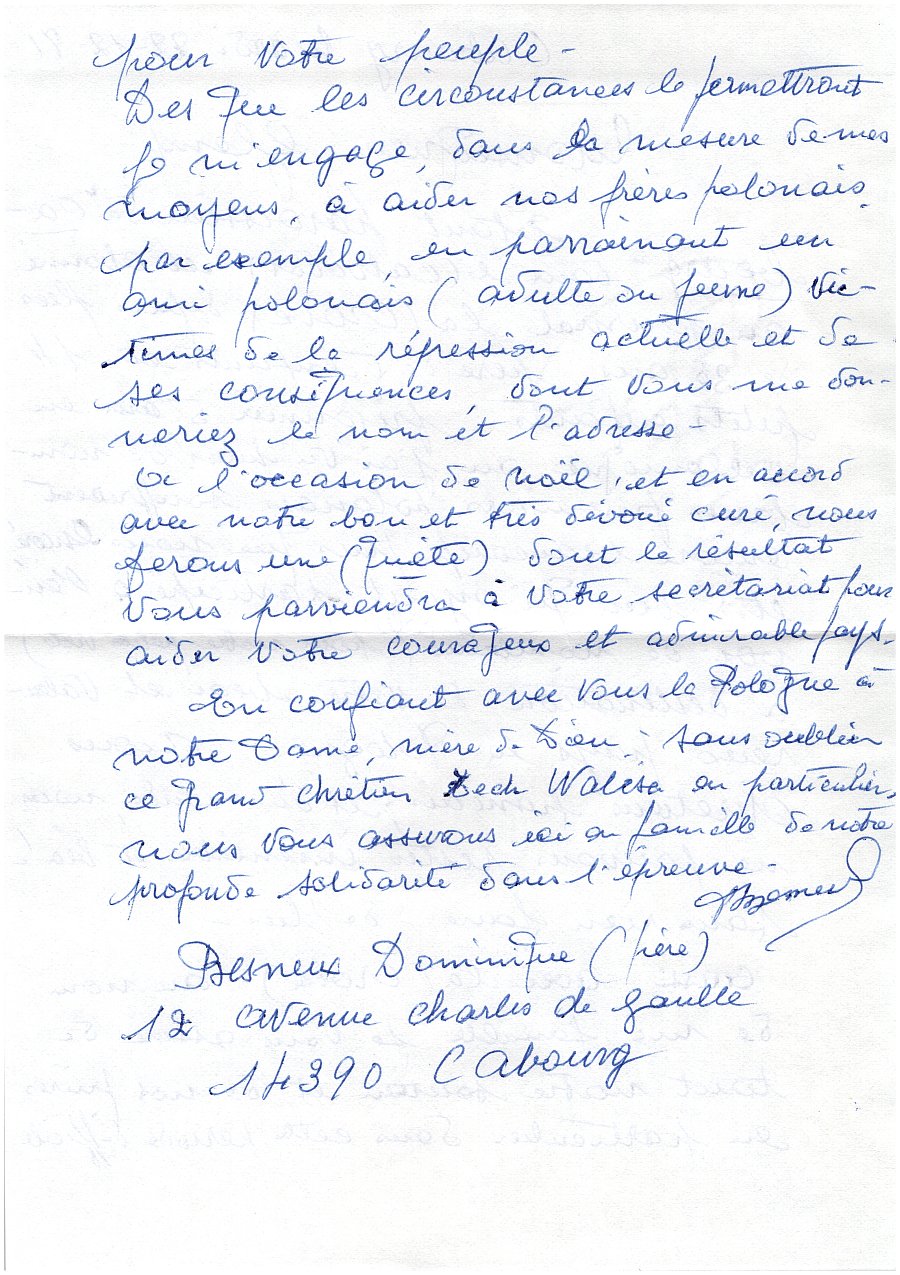 pour votre peuple -
Dès que les circonstances le permettront
je m'engage, dans la mesure de mes
moyens, à aider nos frères polonais,
par exemple, en parrainant un
ami polonais (adulte ou jeune) vic-
times de la répression actuelle et de
ses conséquences, dont vous me don-
neriez le nom et l'adresse -
A l'occasion de Noël, et en accord
avec notre bon et très dévoué curé, nous
ferons une (quête) dont le résultat
vous parviendra à votre secrétariat pour
aider votre courageux et admirable pays.
En confiant avec vous la Pologne à
notre Dame, mère de Dieu, sans oublier
ce grand chrétien Lech Walesa en particulier,
nous vous assurons ici en famille de notre
profonde solidarité dans l'épreuve -
Besneux Dominique (père)
12 avenue Charles de Gaulle
14390 Cabourg